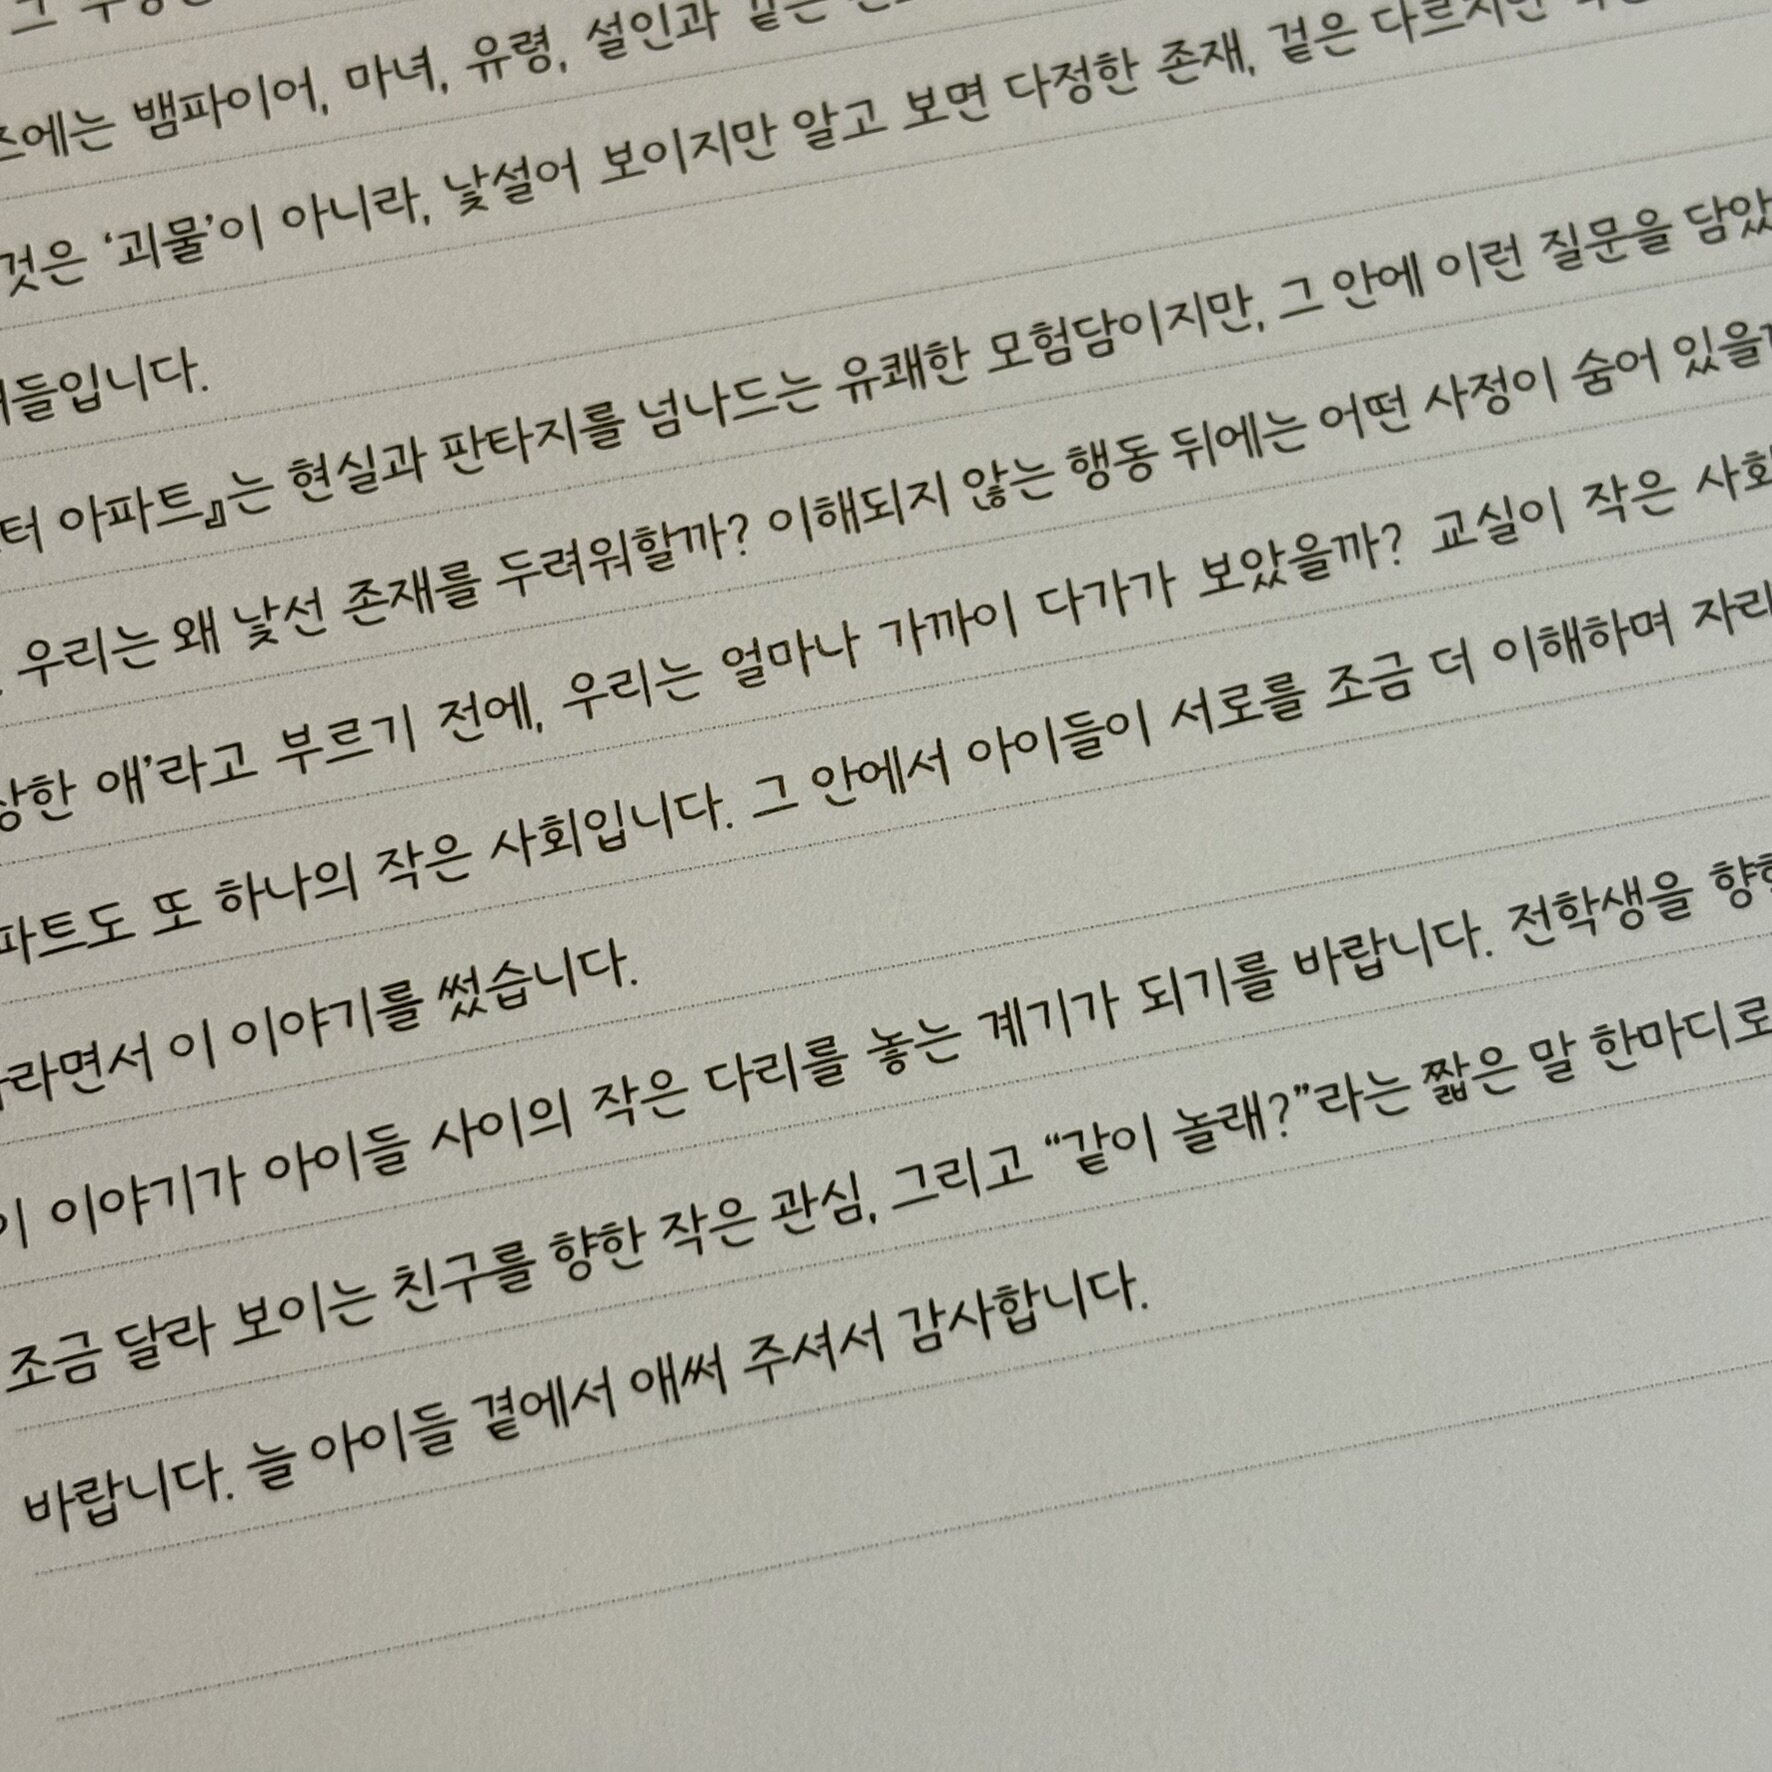 그
에는 뱀파이어, 마녀, 유령, 설인과 같은
것은 ‘괴물’이 아니라, 낯설어 보이지만 알고 보면 다정한 존재, 겉은 다르지만
들입니다.
터 아파트』는 현실과 판타지를 넘나드는 유쾌한 모험담이지만, 그 안에 이런 질문을 담았
우리는 왜 낯선 존재를 두려워할까? 이해되지 않는 행동 뒤에는 어떤 사정이 숨어 있을
상한 애’라고 부르기 전에, 우리는 얼마나 가까이 다가가 보았을까? 교실이 작은 사회
파트도 또 하나의 작은 사회입니다. 그 안에서 아이들이 서로를 조금 더 이해하며 자라
라면서 이 이야기를 썼습니다.
이 이야기가 아이들 사이의 작은 다리를 놓는 계기가 되기를 바랍니다. 전학생을 향한
조금 달라 보이는 친구를 향한 작은 관심, 그리고 “같이 놀래?”라는 짧은 말 한마디로
바랍니다. 늘 아이들 곁에서 애써 주셔서 감사합니다.